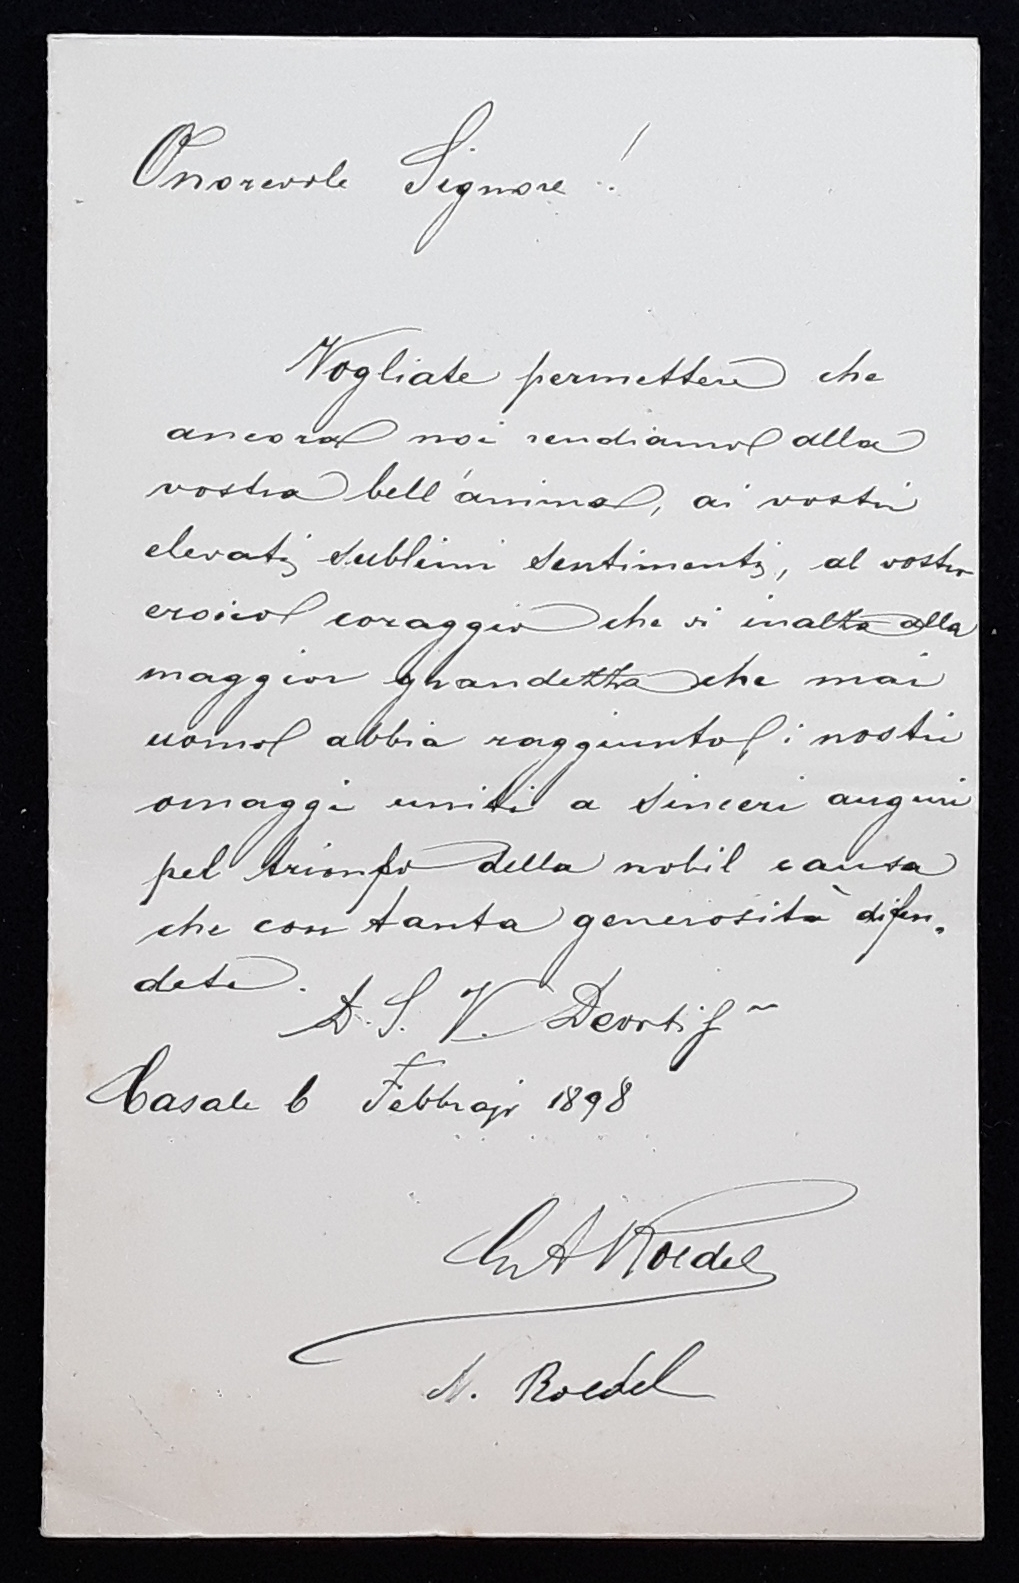 Onorevole Signore!
Vogliate permettere che
ancora noi rendiamo alla
vostra bell'anima, ai vostri
elevati, sublimi sentimenti, al vostro
eroico coraggio che vi inalza alla
maggior grandezza che mai
uomo abbia raggiunto, i nostri
omaggi uniti a sinceri auguri
pel trionfo della nobil causa
che con tanta generosità difen-
dete.
D. S. V. Devotis
Casale 6 Febbrajo 1898
A Roedel
N. Roedel